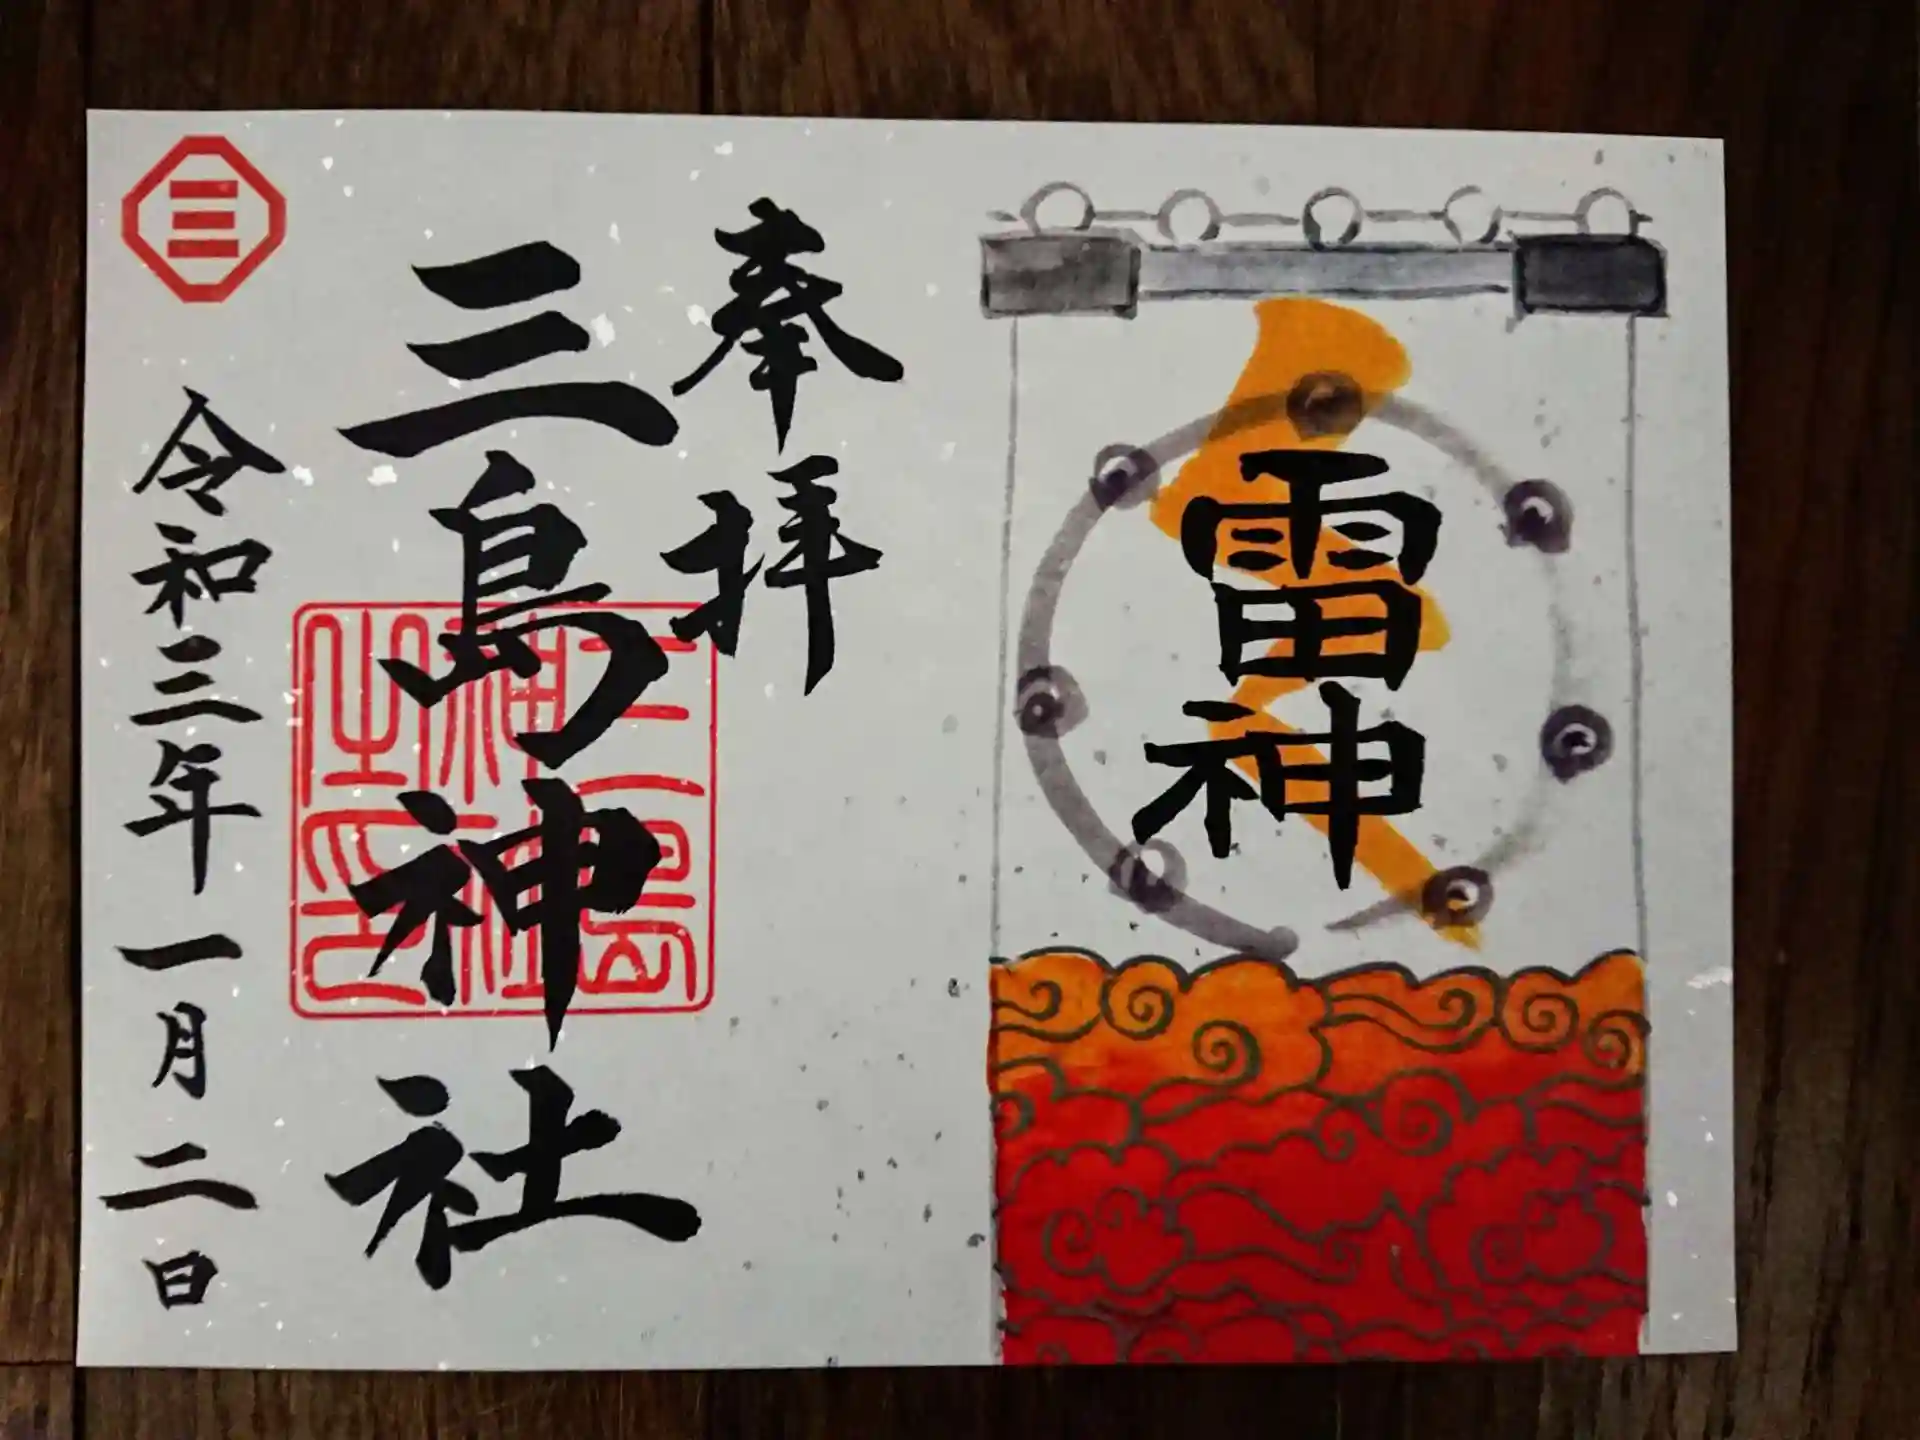 雷神
奉拝
三島神社
三島神社之印
三
令和三年一月二日